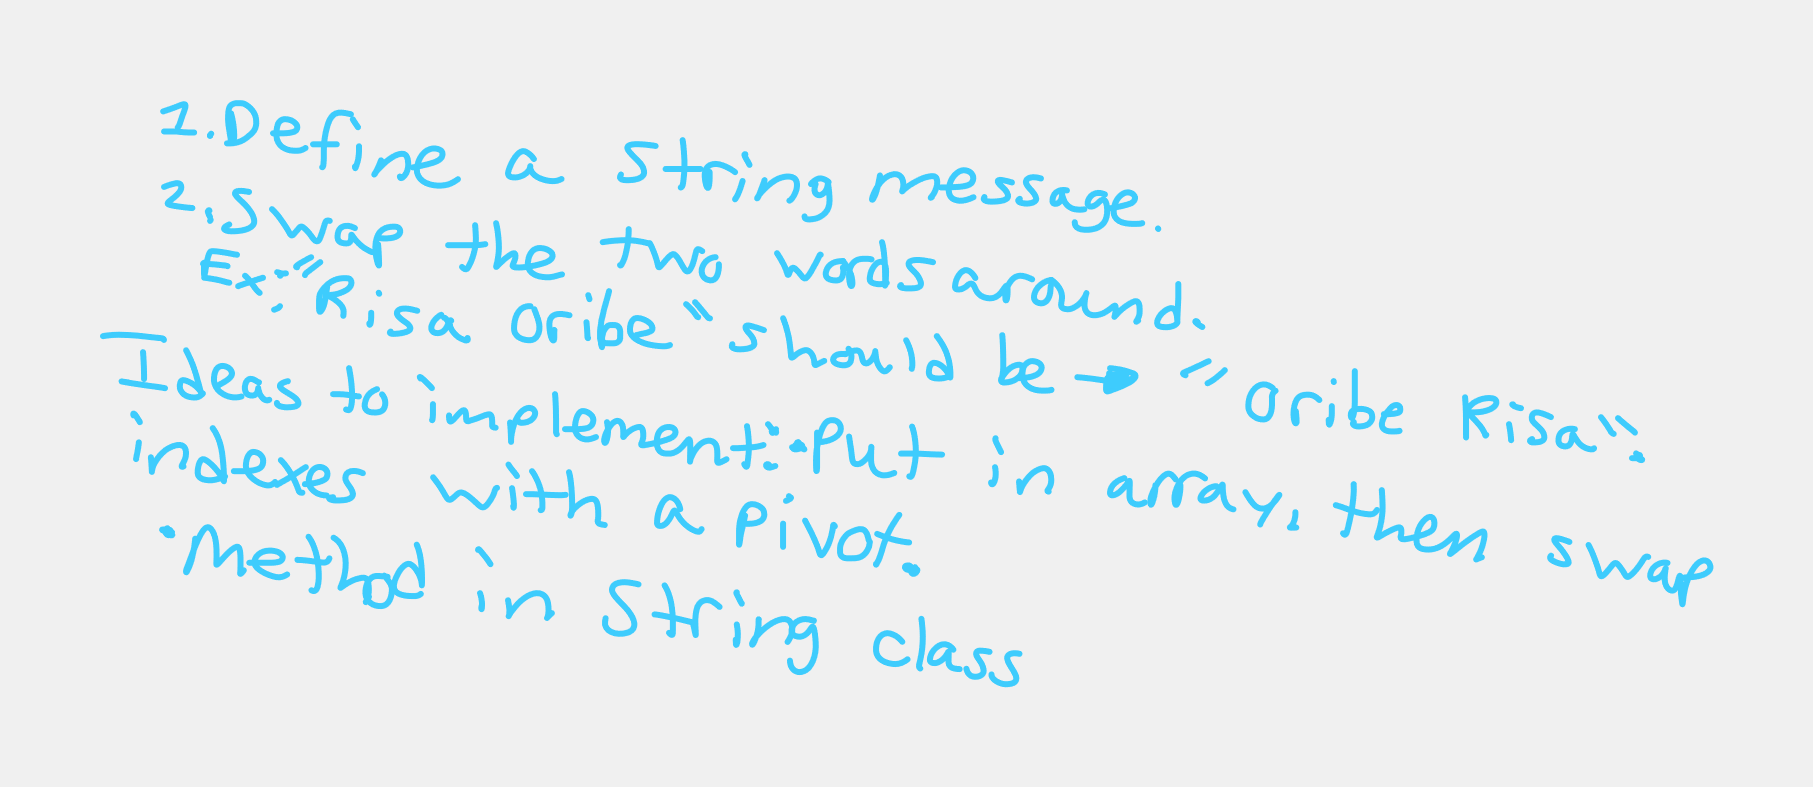 1. Define a String message.
2. Swap the two words around.
Ex: "Risa Oribe" should be → "Oribe Risa".
Ideas to implement: • Put in array, then swap
indexes with a pivot.
• Method in String class